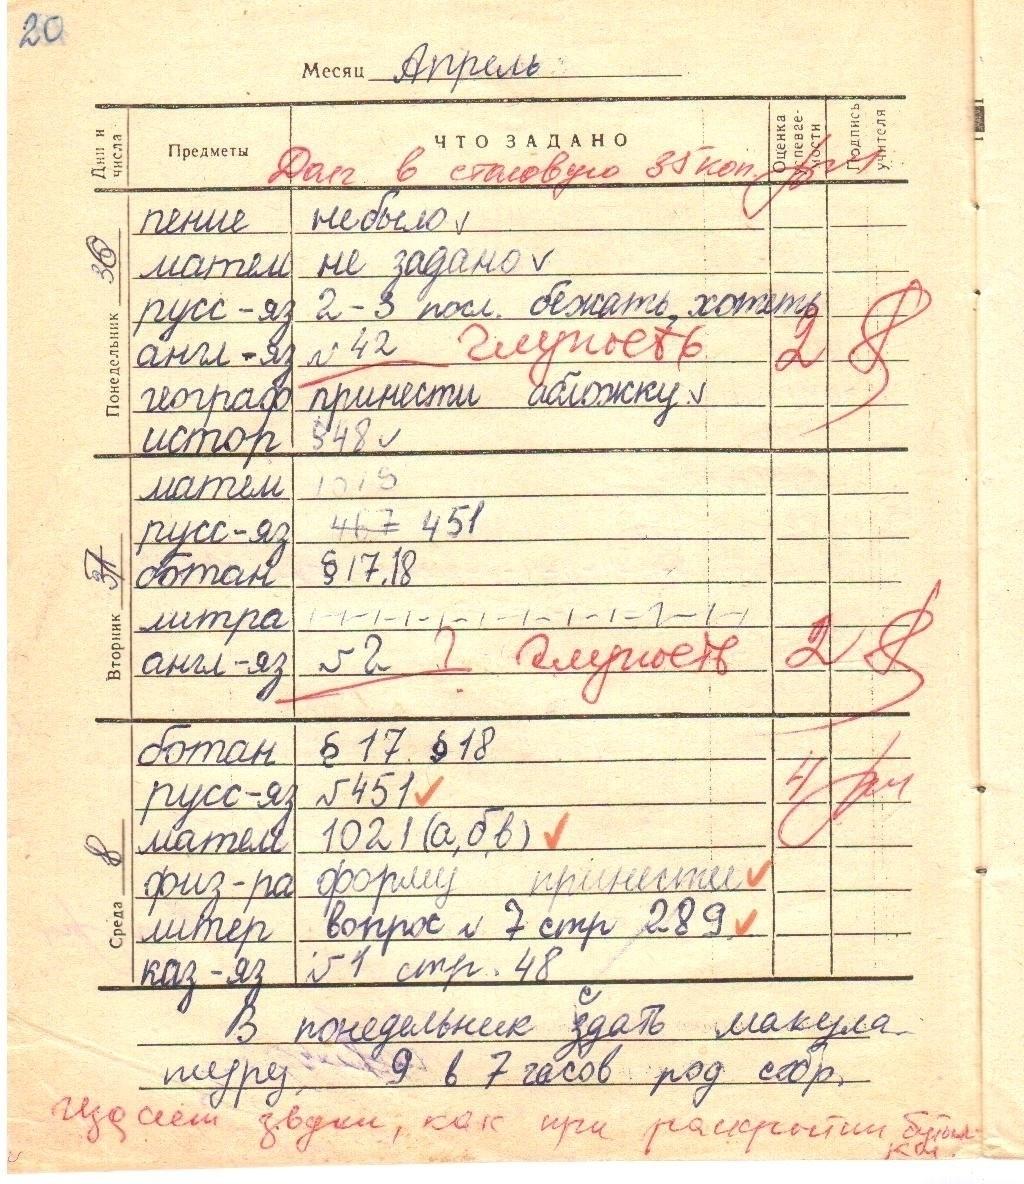 20
Месяц Апрель
Дни и числа Предметы ЧТО ЗАДАНО Оценка успеваемости Подпись учителя
Долг в столовую 35 коп.
Понедельник 36
пение небыло ✓
матем не задано ✓
русс-яз 2-3 посл. бежать, хотеть
англ-яз №42 Глупость 2
географ принести обложку ✓
истор §48 ✓
Вторник 37
матем 1019
русс-яз 467 451
ботан § 17, 18
литра
англ-яз №2 ? Глупость 2
Среда 8
ботан § 17. § 18 4
русс-яз №451 ✓
матем 1021 (а, б, в) ✓
физ-ра форму принести ✓
литер вопрос № 7 стр 289 ✓
каз-яз №1 стр. 48
с
В понедельник здать макула-
туру, 9 в 7 часов род собр.
Издает звуки, как при раскрытии бутыл-
ки.